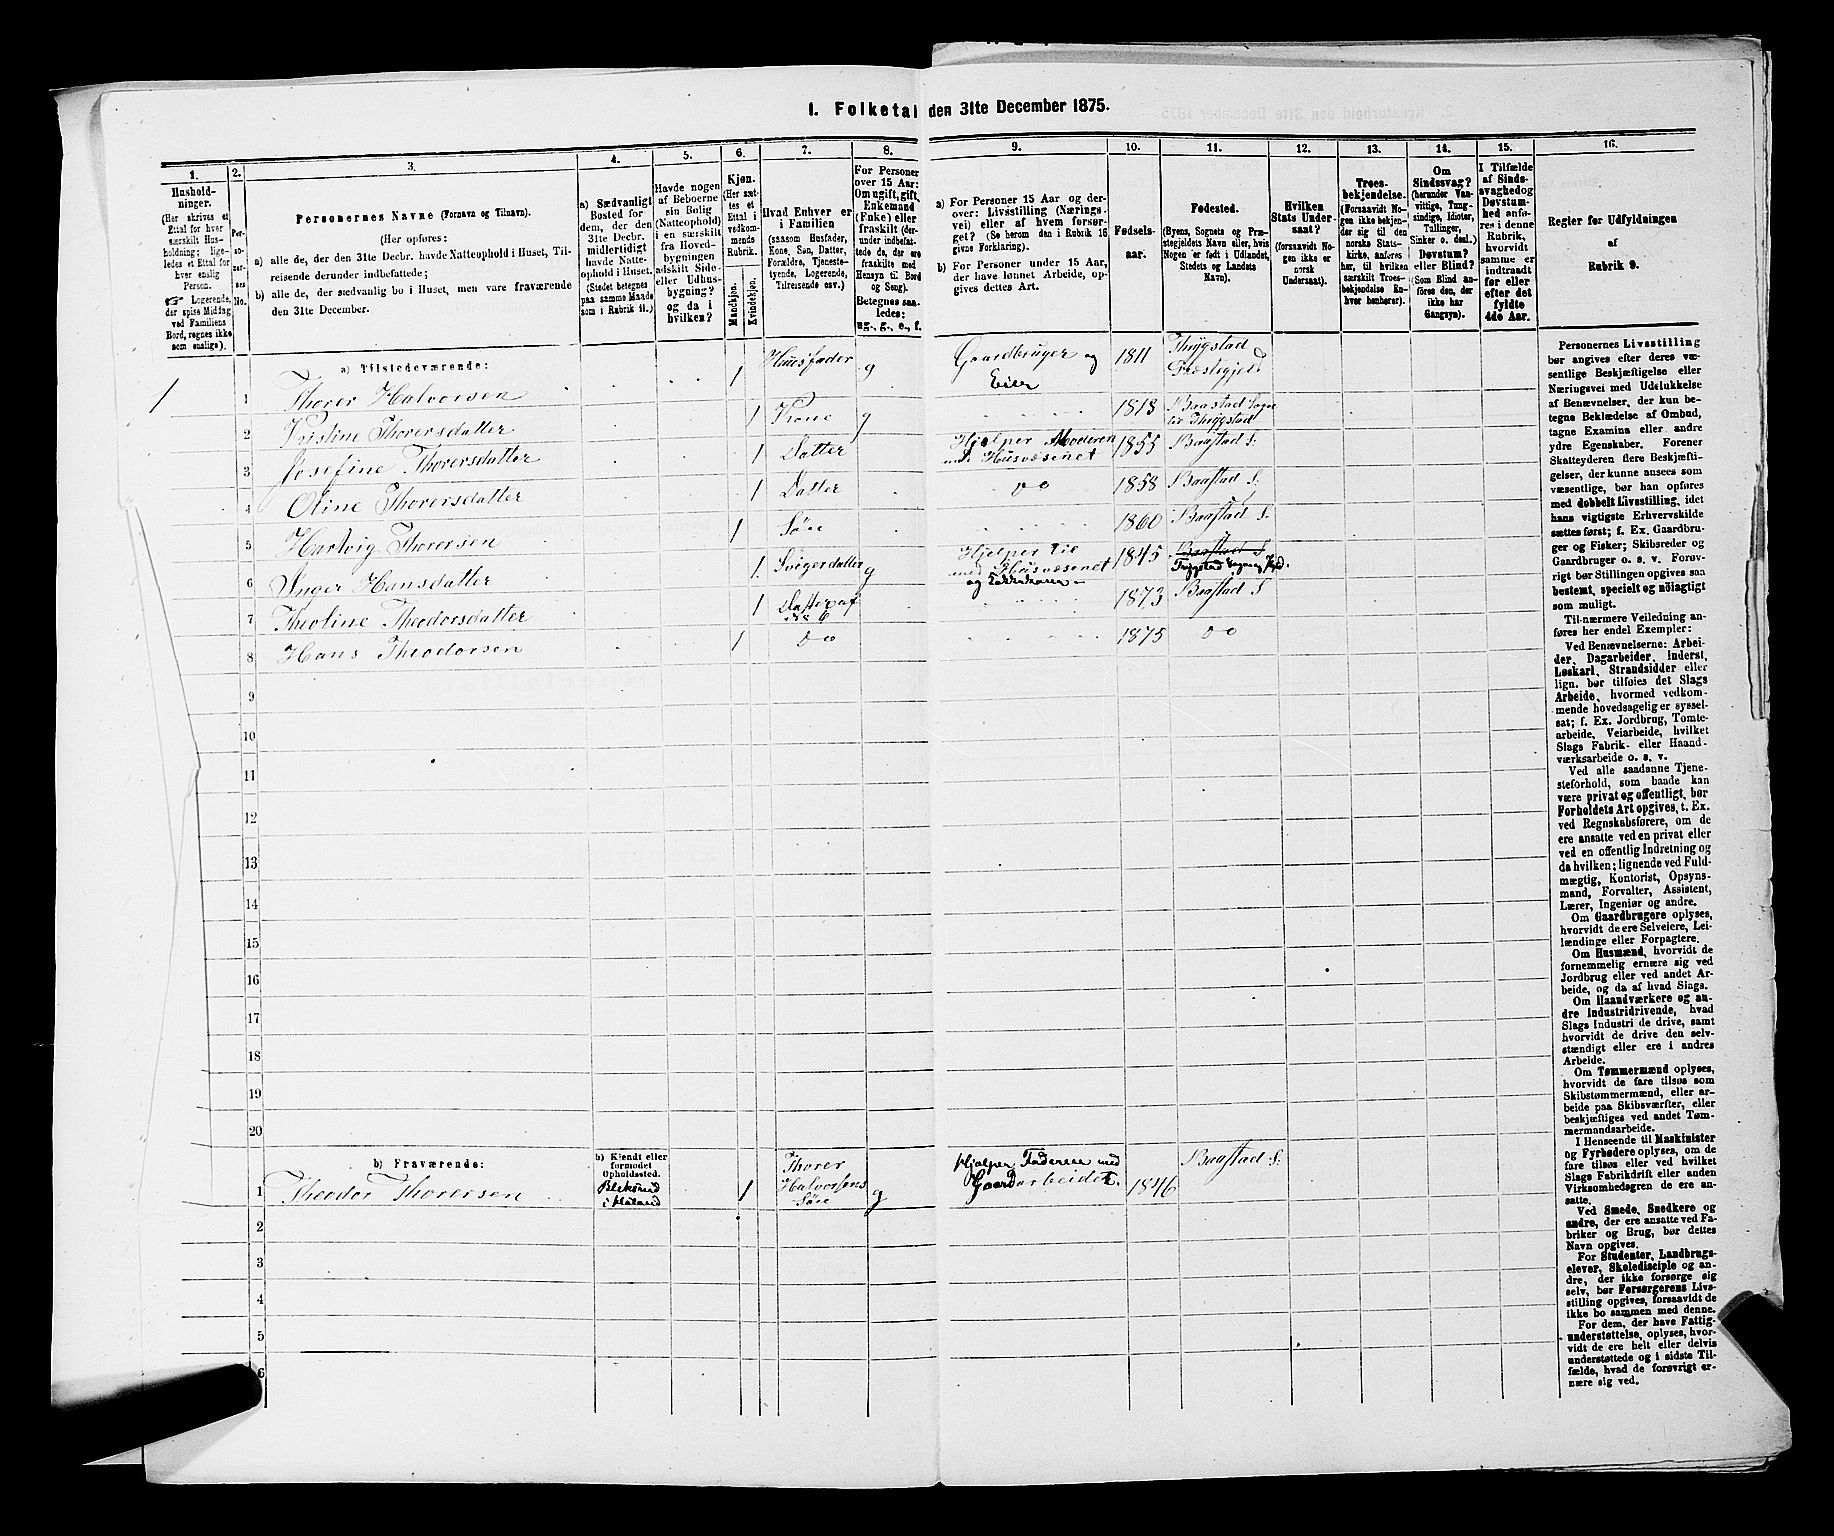 1. Folketal den 31te December 1875.
1.
2.
3.
4.
5.
6.
7.
8.
9.
10.
11.
12.
13.
14.
15.
16.
Hushold-
ninger.
(Her skrives et
Ettal for hver
særskilt Hus-
holdning; lige-
ledes et Ettal for
hver enslig
Person.
☞ Logerende,
der spise Middag
ved Familiens
Bord, regnes ikke
som enslige).
Per-
so-
ner-
nes
No.
Personernes Navne (Fornavn og Tilnavn).
(Her opføres:
a) alle de, der den 31te Decbr. havde Natteophold i Huset, Til-
reisende derunder indbefattede;
b) alle de, der sædvanlig bo i Huset, men vare fraværende
den 31te December.
a) Sædvanligt
Bosted for
dem, der den
31te Decbr.
midlertidigt
havde Natte-
ophold i Huset.
(Stedet betegnes
paa samme Maade
som i Rubrik 11.)
Havde nogen
af Beboerne
sin Bolig
(Natteophold)
i en særskilt
fra Hoved-
bygningen
adskilt Side-
eller Udhus-
bygning?
og da i
hvilken?
Kjøn.
(Her sæt-
tes et
Ettal i
vedkom-
mende
Rubrik.
Mandkjøn.
Kvindekjøn.
Hvad Enhver er
i Familien
(saasom Husfader,
Kone, Søn, Datter,
Forældre, Tjeneste-
tyende, Logerende,
Tilreisende osv.)
For Personer
over 15 Aar:
Om ugift, gift,
Enkemand
(Enke) eller
fraskilt (der-
under indbefat-
tede de, der ere
fraskilte med
Hensyn til Bord
og Seng).
Betegnes saa-
ledes:
ug., g., e., f.
a) For Personer 15 Aar og der-
over: Livsstilling (Nærings-
vei) eller af hvem forsør-
get? (Se herom den i Rubrik 16
givne Forklaring).
b) For Personer under 15 Aar,
der have lønnet Arbeide, op-
gives dettes Art.
Fødsels-
aar.
Fødested.
(Byens, Sognets og Præ-
stegjeldets Navn eller, hvis
Nogen er født i Udlandet,
Stedets og Landets
Navn).
Hvilken
Stats Under-
saat?
(forsaavidt No-
gen ikke er
norsk
Undersaat).
Troes-
bekjendelse.
(Forsaavidt No-
gen ikke bekjen-
der sig til den
norske Stats-
kirke, anføres
her, til hvilken
særskilt Troes-
bekjendelse En-
hver henhører).
Om
Sindssvag?
(herunder Van-
vittige, Tung-
sindige, Idioter,
Tullinger,
Sinker o. desl.)
Døvstum?
eller Blind?
(Som Blind an-
føres den, der
ikke har
Gangsyn).
I Tilfælde
af Sinds-
svaghed og
Døvstum-
hed anfø-
res i denne
Rubrik,
hvorvidt
samme er
indtraadt
før eller
efter det
fyldte
4de Aar.
Regler for Udfyldningen
af
Rubrik 9.
a) Tilstedeværende:
1
1 Thorer Halvorsen 1 Huusfader g Gaardbruger og Eier 1811 Thrygstad Præstegjeld
2 Kristine Thorersdatter 1 Kone g 1813 Baastad Sogn til Thrygstad
3 Josefine Thorersdatter 1 Datter Hjelper Moderen med Husvæsenet 1855 Baastad S.
4 Oline Thorersdatter 1 Datter do 1858 Baastad S.
5 Hartvig Thorersen 1 Søn 1860 Baastad S.
6 Inger Hansdatter 1 Svigerdatter g Hjelper til med Husvæsenet og 1845 Baastad S Trygstad
7 Theoline Theodorsdatter 1 Datter af No 6 1873 Baastad S
8 Hans Theodorsen 1 do 1875 do
9
10
11
12
13
14
15
16
17
18
19
20
b) Fraværende:
b) Kjendt eller
formodet
Opholdssted.
1 Theodor Thorersen 1 Thorer Halvorsens Søn g Hjelper Faderen med Gaardarbeidet. 1846 Baastad S.
2
3
4
5
6
Personernes Livsstilling
bør angives efter deres væ-
sentlige Beskjæftigelse eller
Næringsvei med Udelukkelse
af Benævnelser, der kun be-
tegne Beklædelse af Ombud,
tagne Examina eller andre
ydre Egenskaber. Forener
Skatteyderen flere Beskjæfti-
gelser, der kunne ansees som
væsentlige, bør han opføres
med dobbelt Livsstilling, idet
hans vigtigste Erhvervskilde
sættes først; f. Ex. Gaardbru-
ger og Fisker; Skibsreder og
Gaardbruger o. s. v. Forøv-
rigt bør Stillingen opgives saa
bestemt, specielt og nöiagtigt
som muligt.
Til nærmere Veiledning an-
føres her endel Exempler:
Ved Benævnelserne: Arbei-
der, Dagarbeider, Inderst,
Løskarl, Strandsidder eller
lign. bør tilføies det Slags
Arbeide, hvormed vedkom-
mende hovedsagelig er syssel-
sat; f. Ex. Jordbrug, Tomte-
arbeide, Veiarbeide, hvilket
Slags Fabrik- eller Haand-
værksarbeide o. s. v.
Ved alle saadanne Tjene-
steforhold, som baade kan
være privat og offentligt, bør
Forholdets Art opgives, t. Ex.
ved Regnskabsførere, om de
ere ansatte ved en privat eller
ved en offentlig Indretning og
da hvilken; lignende ved Fuld-
mægtig, Kontorist, Opsyns-
mand, Forvalter, Assistent,
Lærer, Ingeniør og andre.
Om Gaardbrugere oplyses,
hvorvidt de ere Selveiere, Lei-
lændinge eller Forpagtere.
Om Husmænd, hvorvidt de
fornemmelig ernære sig ved
Jordbrug eller ved andet Ar-
beide, og da af hvad Slags.
Om Haandværkere og an-
dre Industridrivende, hvad
Slags Industri de drive, samt
hvorvidt de drive den selv-
stændigt eller ere i andres
Arbeide.
Om Tømmermænd oplyses,
hvorvidt de fare tilsøs som
Skibstømmermænd, eller ar-
beide paa Skibsværfter, eller
beskjæftiges ved andet Tøm-
mermandsarbeide.
I Henseende til Maskinister
og Fyrbødere oplyses, om de
fare tilsøs eller ved hvilket
Slags Fabrikdrift eller anden
Virksomhedsgren de ere an-
satte.
Ved Smede, Snedkere og
andre, der ere ansatte ved Fa-
briker og Brug, bør dettes
Navn opgives.
For Studenter, Landbrugs-
elever, Skoledisciple og an-
dre, der ikke forsørge sig
selv, bør Forsørgerens Livs-
stilling opgives, forsaavidt de
ikke bo sammen med denne.
For dem, der have Fattig-
understøttelse, oplyses, hvor-
vidt de ere helt eller delvis
understøttede og i sidste Til-
fælde, hvad de forøvrigt er-
nære sig ved.